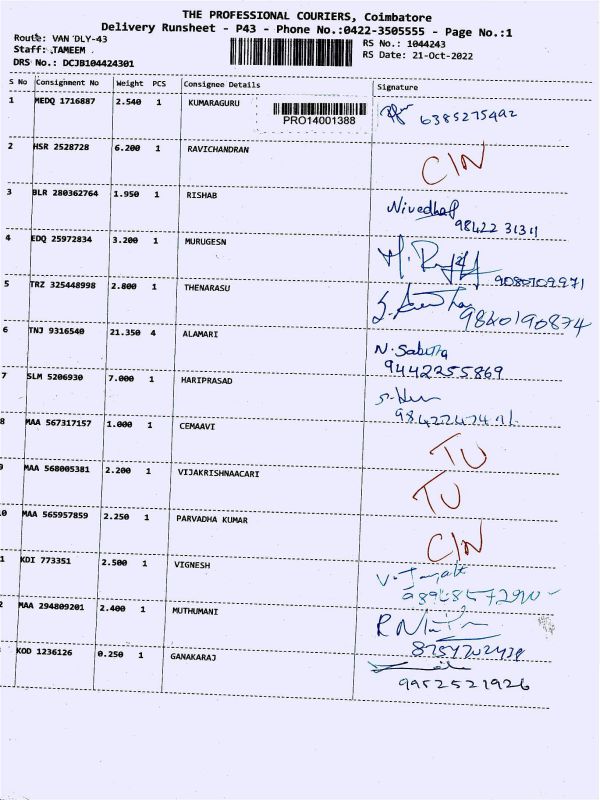 THE PROFESSIONAL COURIERS, Coimbatore
Delivery Runsheet - P43 - Phone No.:0422-3505555 - Page No.:1
Route: VAN DLY-43
Staff: TAMEEM
DRS No.: DCJB104424301
RS No.: 1044243
RS Date: 21-Oct-2022
S No Consignment No Weight PCS Consignee Details Signature
1 MEDQ 1716887 2.540 1 KUMARAGURU PRO14001388 6385275492
2 HSR 2528728 6.200 1 RAVICHANDRAN CIN
3 BLR 280362764 1.950 1 RISHAB Nivedha
98422 31311
4 EDQ 25972834 3.200 1 MURUGESN
5 TRZ 325448998 2.800 1 THENARASU
9840190874
6 TNJ 9316540 21.350 4 ALAMARI N. Sabitha
9442255869
7 SLM 5206930 7.000 1 HARIPRASAD
8 MAA 567317157 1.000 1 CEMAAVI TU
9 MAA 568005381 2.200 1 VIJAKRISHNAACARI TU
0 MAA 565957859 2.250 1 PARVADHA KUMAR CIN
1 KDI 773351 2.500 1 VIGNESH
2 MAA 294809201 2.400 1 MUTHUMANI
KOD 1236126 0.250 1 GANAKARAJ
9952521926